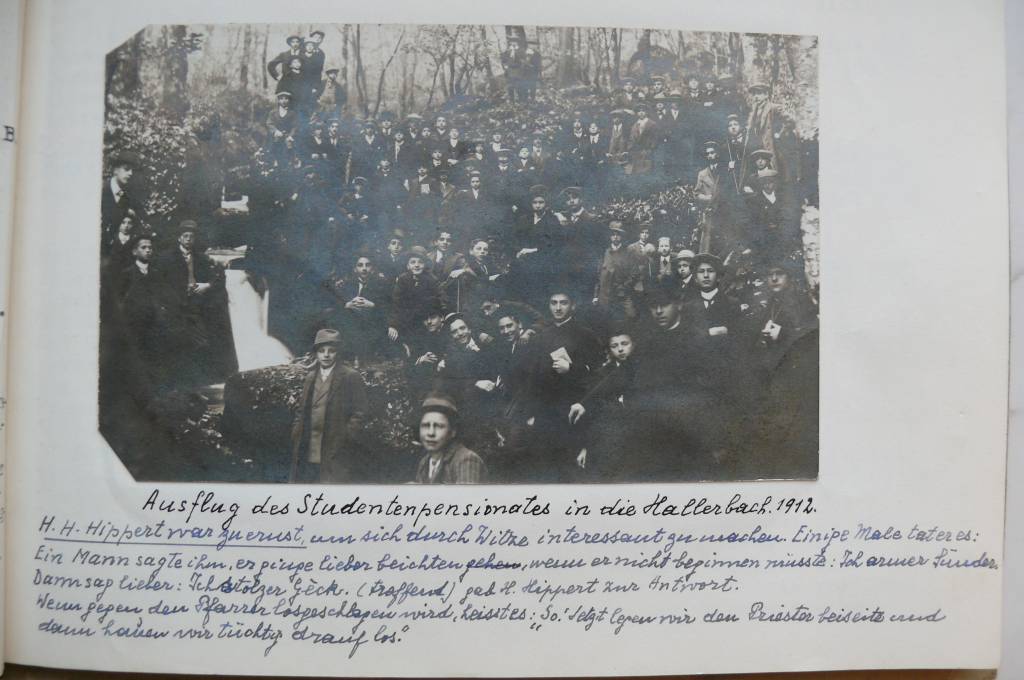 B
Ausflug des Studentenpensionates in die Hallerbach. 1912.
H. H. Hippert war zu ernst, um sich durch Witze interessant zu machen. Einige Male tat er es:
Ein Mann sagte ihm, er ginge lieber beichten gehen, wenn er nicht beginnen müsste: Ich armer Sünder.
Dann sag lieber: Ich stolzer Geck. (treffend) gab H. Hippert zur Antwort.
Wenn gegen den Pfarrer losgeschlagen wird, heisst es: „So! Jetzt legen wir den Priester beiseite und
dann hauen wir tüchtig drauf los."